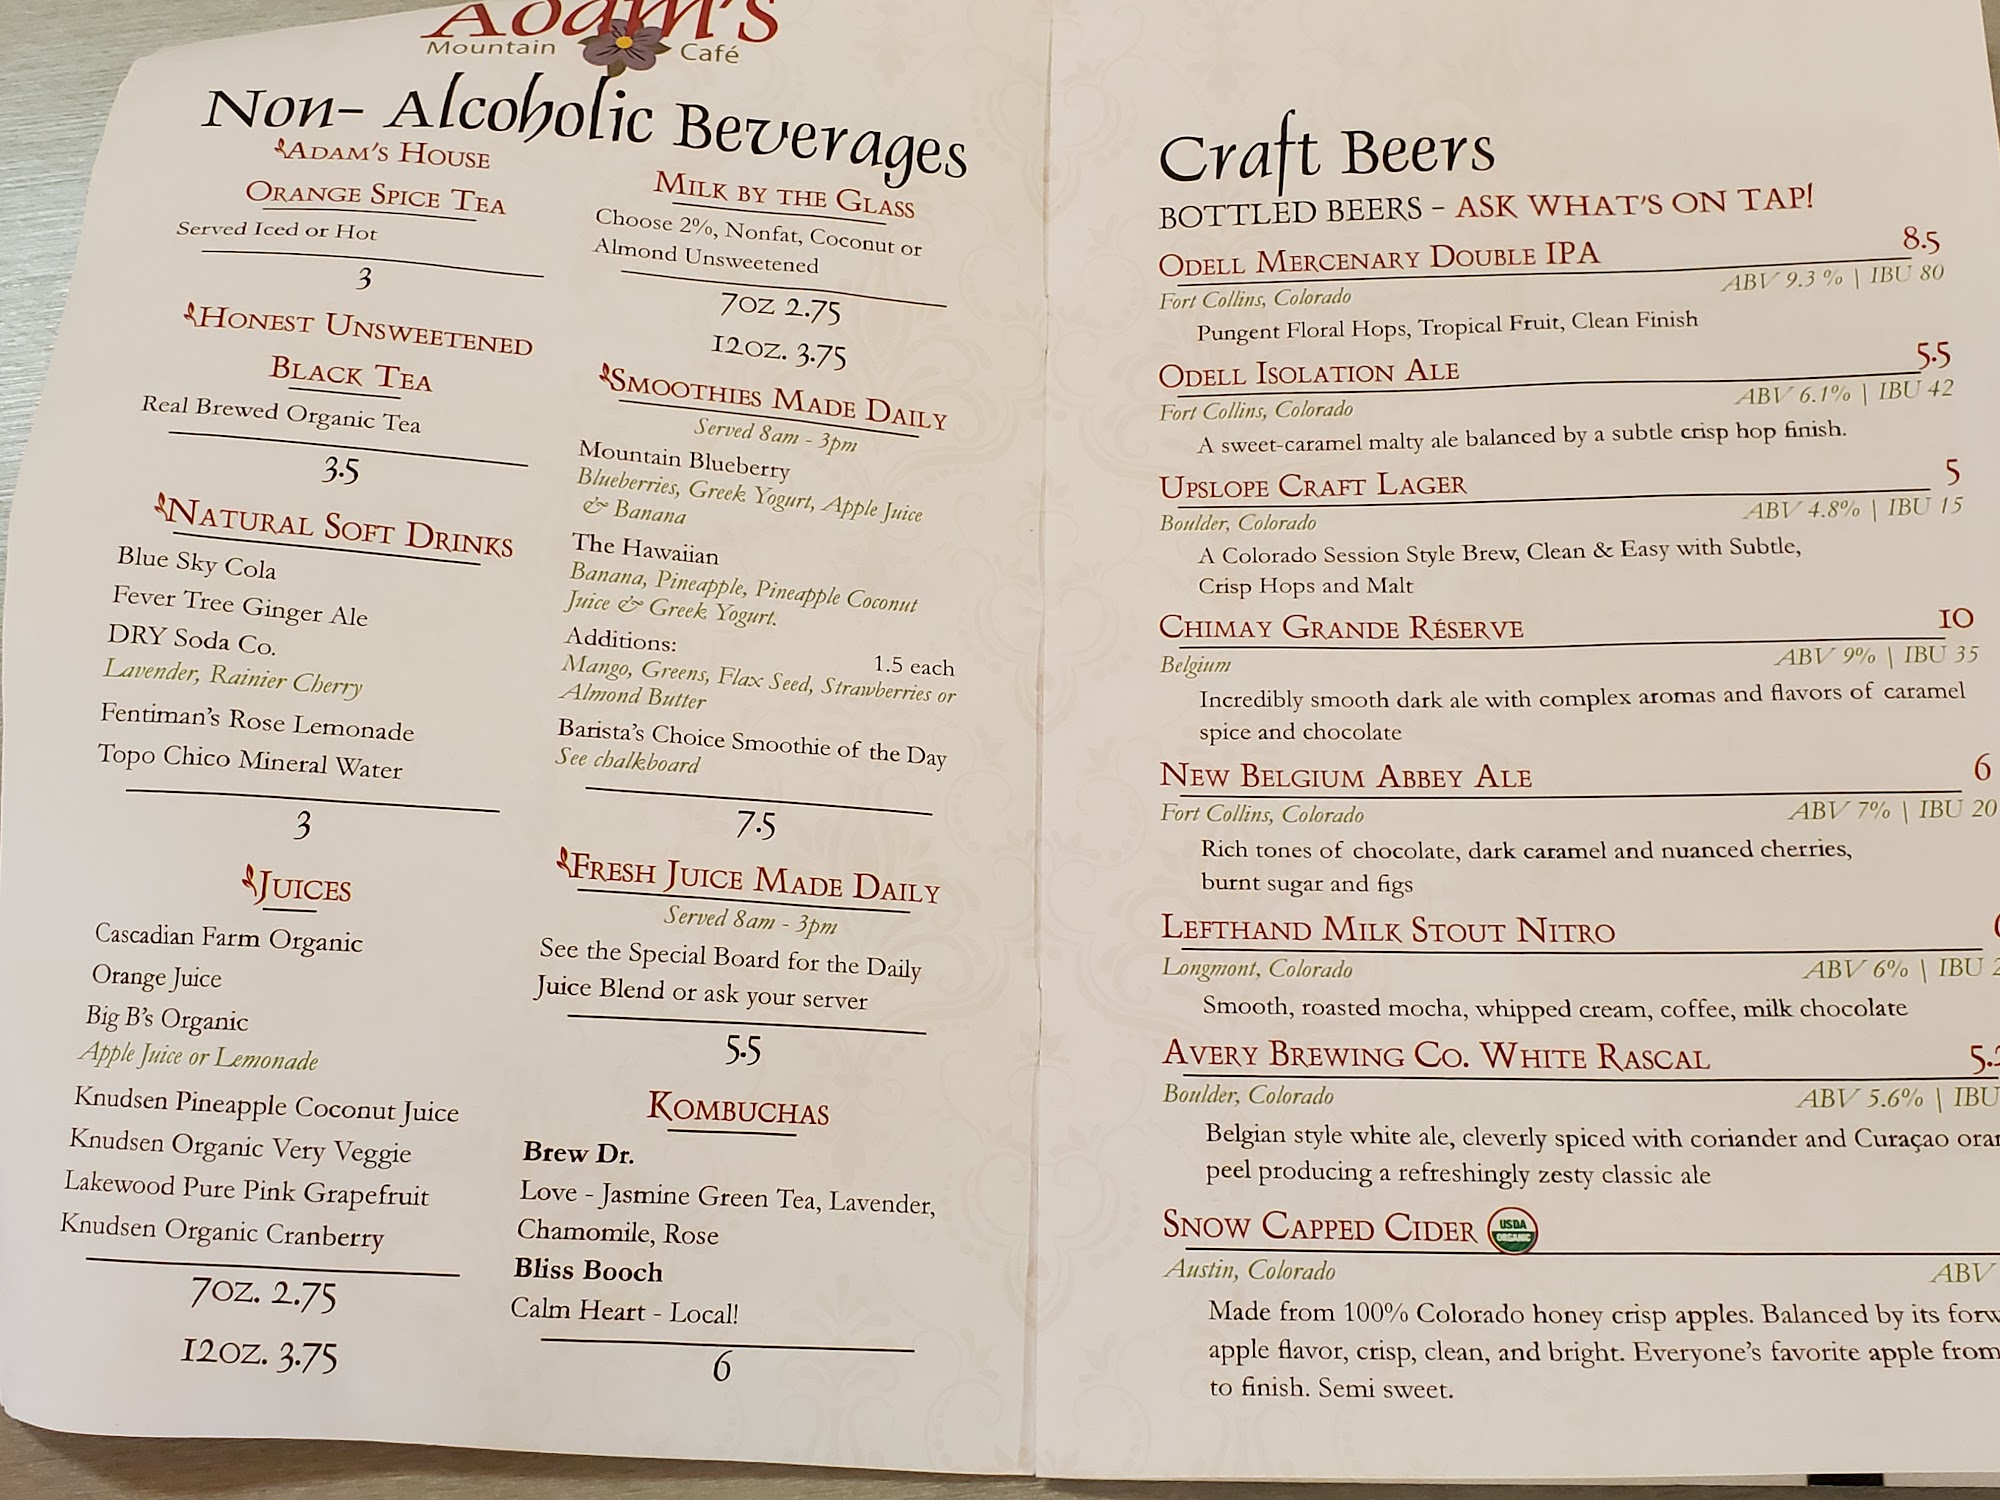 Adam's
Mountain Café
Non- Alcoholic Beverages
Adam's House
Orange Spice Tea
Served Iced or Hot
3
Honest Unsweetened
Black Tea
Real Brewed Organic Tea
3.5
Natural Soft Drinks
Blue Sky Cola
Fever Tree Ginger Ale
DRY Soda Co.
Lavender, Rainier Cherry
Fentiman's Rose Lemonade
Topo Chico Mineral Water
3
Juices
Cascadian Farm Organic
Orange Juice
Big B's Organic
Apple Juice or Lemonade
Knudsen Pineapple Coconut Juice
Knudsen Organic Very Veggie
Lakewood Pure Pink Grapefruit
Knudsen Organic Cranberry
7oz. 2.75
12oz. 3.75
Milk by the Glass
Choose 2%, Nonfat, Coconut or
Almond Unsweetened
7oz 2.75
12oz. 3.75
Smoothies Made Daily
Served 8am - 3pm
Mountain Blueberry
Blueberries, Greek Yogurt, Apple Juice
& Banana
The Hawaiian
Banana, Pineapple, Pineapple Coconut
Juice & Greek Yogurt.
Additions: 1.5 each
Mango, Greens, Flax Seed, Strawberries or
Almond Butter
Barista's Choice Smoothie of the Day
See chalkboard
7.5
Fresh Juice Made Daily
Served 8am - 3pm
See the Special Board for the Daily
Juice Blend or ask your server
5.5
Kombuchas
Brew Dr.
Love - Jasmine Green Tea, Lavender,
Chamomile, Rose
Bliss Booch
Calm Heart - Local!
6
Craft Beers
BOTTLED BEERS - ASK WHAT'S ON TAP!
Odell Mercenary Double IPA 8.5
Fort Collins, Colorado ABV 9.3 % | IBU 80
Pungent Floral Hops, Tropical Fruit, Clean Finish
Odell Isolation Ale 5.5
Fort Collins, Colorado ABV 6.1% | IBU 42
A sweet-caramel malty ale balanced by a subtle crisp hop finish.
Upslope Craft Lager 5
Boulder, Colorado ABV 4.8% | IBU 15
A Colorado Session Style Brew, Clean & Easy with Subtle,
Crisp Hops and Malt
Chimay Grande Réserve 10
Belgium ABV 9% | IBU 35
Incredibly smooth dark ale with complex aromas and flavors of caramel
spice and chocolate
New Belgium Abbey Ale 6
Fort Collins, Colorado ABV 7% | IBU 20
Rich tones of chocolate, dark caramel and nuanced cherries,
burnt sugar and figs
Lefthand Milk Stout Nitro
Longmont, Colorado ABV 6% | IBU
Smooth, roasted mocha, whipped cream, coffee, milk chocolate
Avery Brewing Co. White Rascal
Boulder, Colorado ABV 5.6% | IBU
Belgian style white ale, cleverly spiced with coriander and Curaçao
peel producing a refreshingly zesty classic ale
Snow Capped Cider USDA ORGANIC
Austin, Colorado ABV
Made from 100% Colorado honey crisp apples. Balanced by its
apple flavor, crisp, clean, and bright. Everyone's favorite apple from
to finish. Semi sweet.